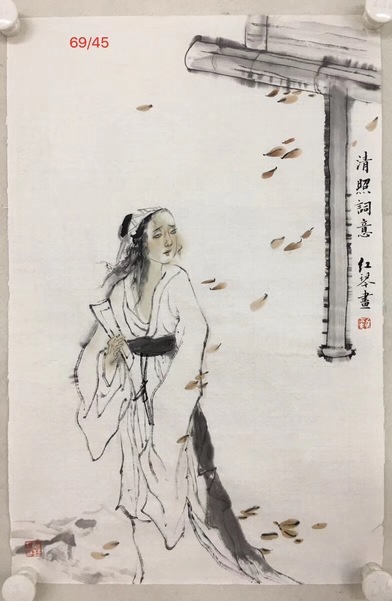 69/45
清照詞意
红琴畫